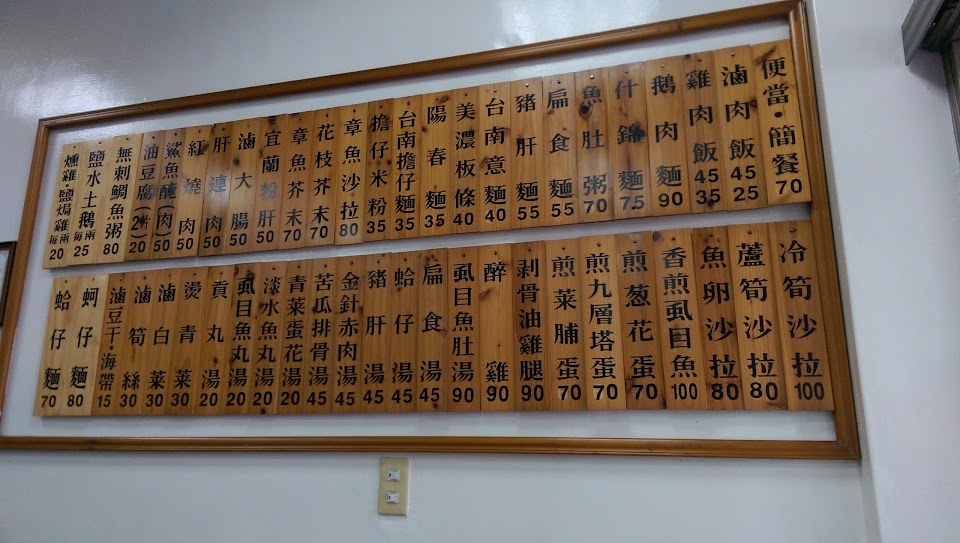 便當·簡餐 70
滷肉飯 45 25
雞肉飯 45 35
鵝肉麵 90
什錦麵 75
魚肚粥 70
扁食麵 55
豬肝麵 55
台南意麵 40
美濃板條 40
陽春麵 35
台南擔仔麵 35
擔仔米粉 35
章魚沙拉 80
花枝芥末 70
章魚芥末 70
宜蘭粉肝 50
滷大腸 50
肝連肉 50
紅燒肉 50
鯊魚醃(肉) 50
油豆腐 2件 20
無刺鯛魚粥 80
鹽水土鵝 每兩 25
燻雞·鹽焗雞 每兩 20
冷筍沙拉 100
蘆筍沙拉 80
魚卵沙拉 80
香煎虱目魚 100
煎蔥花蛋 70
煎九層塔蛋 70
煎菜脯蛋 70
剥骨油雞腿 90
醉雞 90
虱目魚肚湯 90
扁食湯 45
蛤仔湯 45
豬肝湯 45
金針赤肉湯 45
苦瓜排骨湯 45
青菜蛋花湯 20
淡水魚丸湯 20
虱目魚丸湯 20
貢丸湯 20
燙青菜 30
滷白菜 30
滷筍絲 30
滷豆干海帶 15
蚵仔麵 80
蛤仔麵 70